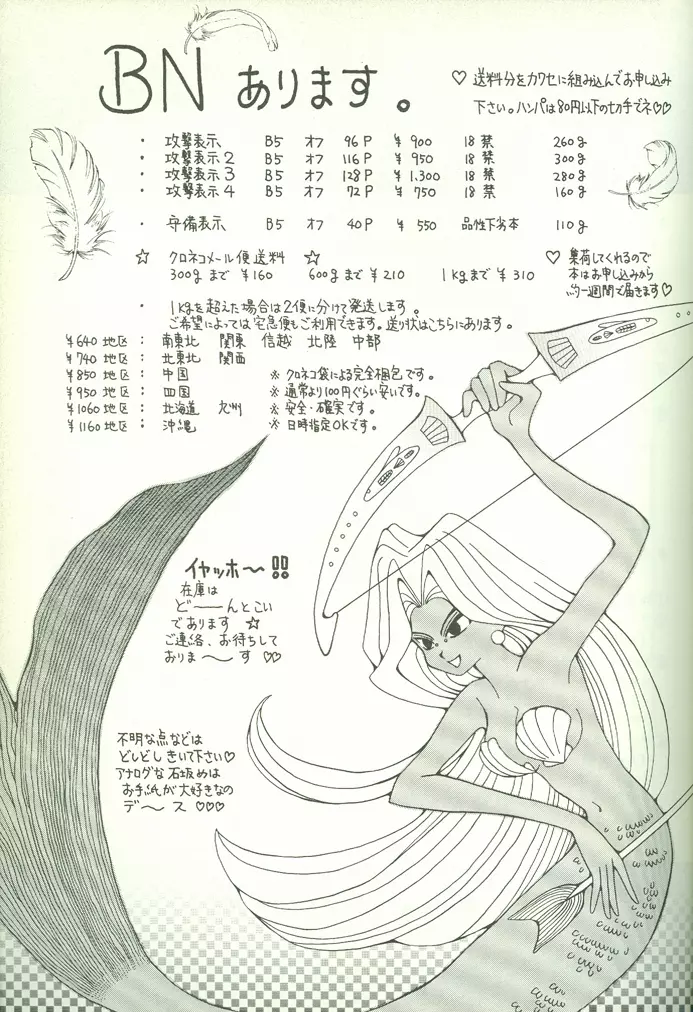 BN あります。
♡ 送料分をカワセに組み込んでお申し込み
下さい。ハンパは80円以下の切手でネ♡♡
・ 攻撃表示 B5 オフ 96P ¥900 18禁 260g
・ 攻撃表示2 B5 オフ 116P ¥950 18禁 300g
・ 攻撃表示3 B5 オフ 128P ¥1,300 18禁 280g
・ 攻撃表示4 B5 オフ 72P ¥750 18禁 160g
・ 守備表示 B5 オフ 40P ¥550 品性下劣本 110g
☆ クロネコメール便送料 ☆
300gまで ¥160 600gまで ¥210 1kgまで ¥310
♡ 集荷してくれるので
本はお申し込みから
約一週間で届きます♡
・ 1kgを超えた場合は2便に分けて発送します。
ご希望によっては宅急便もご利用できます。送り状はこちらにあります。
¥640地区: 南東北 関東 信越 北陸 中部
¥740地区: 北東北 関西
¥850地区: 中国 ※クロネコ袋による完全梱包です。
¥950地区: 四国 ※通常より100円ぐらい安いです。
¥1060地区: 北海道 九州 ※安全・確実です。
¥1160地区: 沖縄 ※日時指定OKです。
イヤッホ〜!!
在庫は
ど——んとこい
であります ☆
ご連絡、お待ちして
おりま〜〜す ♡♡
不明な点などは
どしどしきいて下さい♡
アナログな石坂めは
お手紙が大好きなの
デ〜ス ♡♡♡